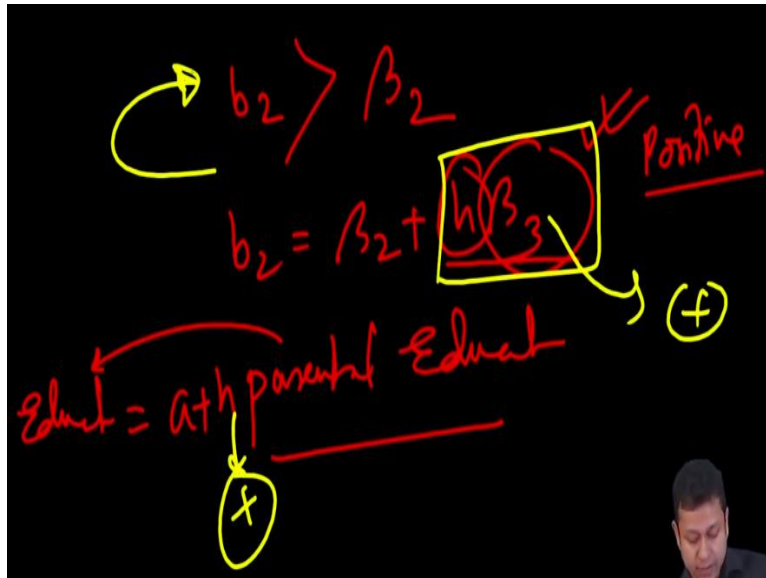 b₂ > β₂
Positive
b₂ = β₂ + hβ₃
(+)
Educt = a+h parental Educat
+